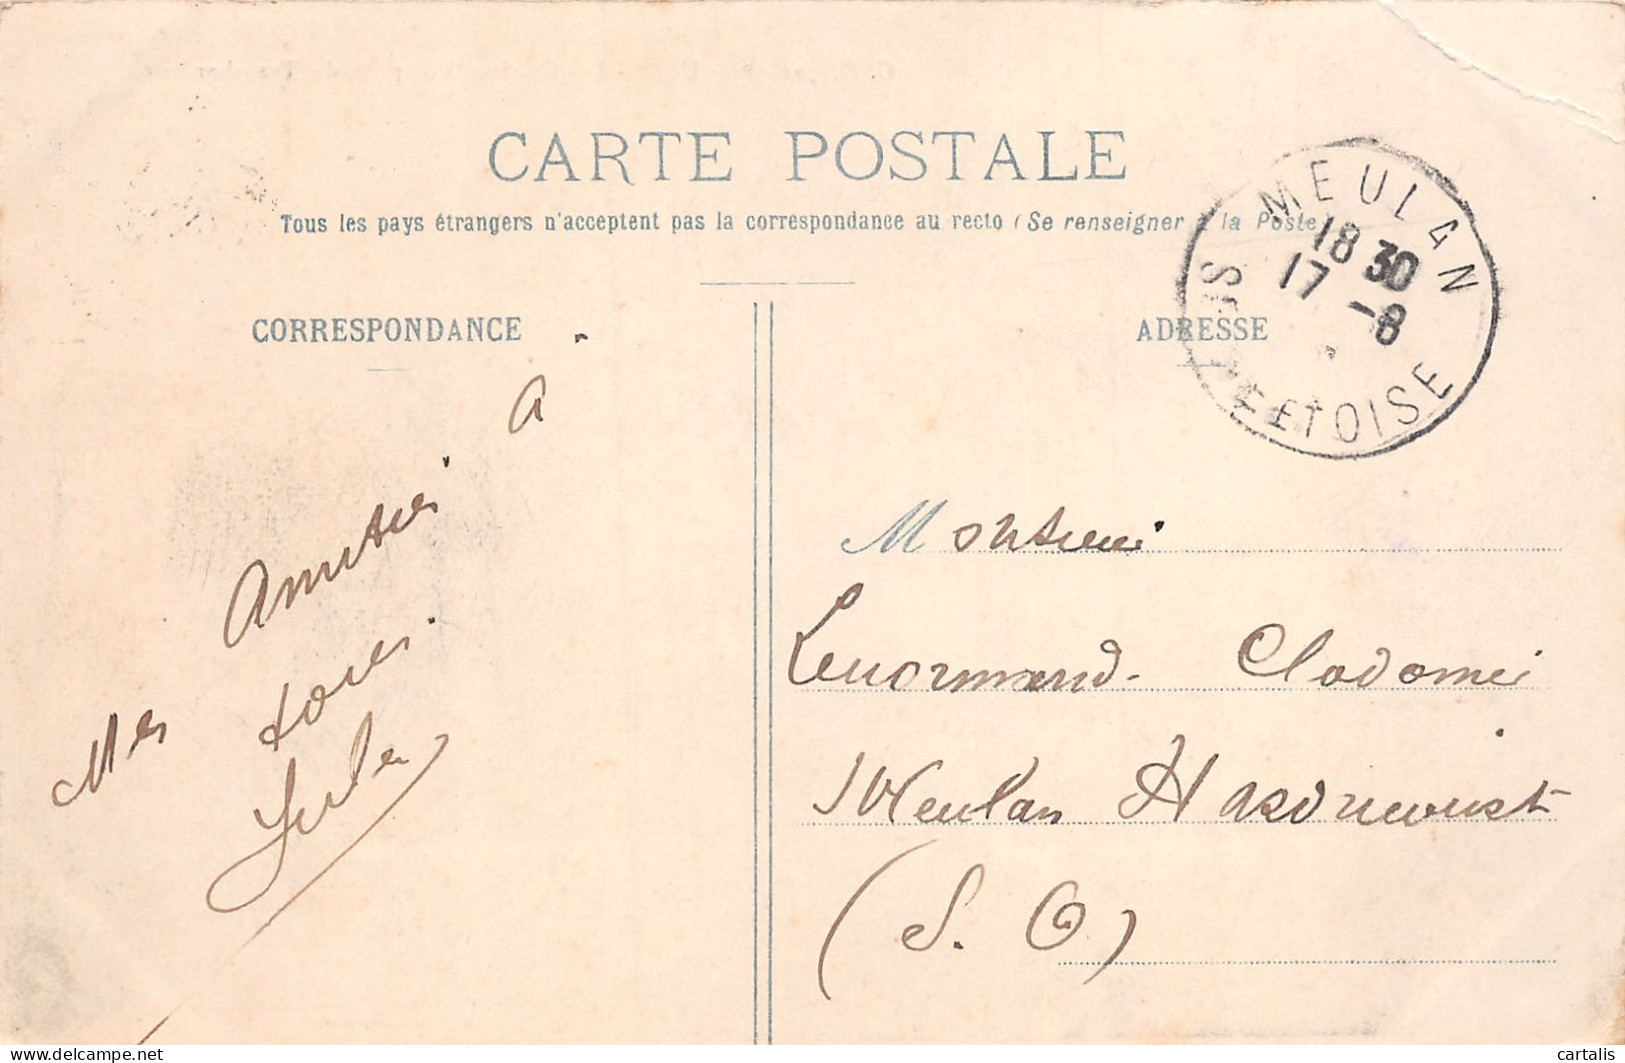 CARTE POSTALE
Tous les pays étrangers n'acceptent pas la correspondance au recto (Se renseigner à la Poste)
CORRESPONDANCE
ADRESSE
MEULAN
18 30
17 -8
SEINE ET OISE
Mes Amitiés à
tous
Jules
Monsieur
Lenormand Clodomir
Meulan Hardricourt
(S. O)
www.delcampe.net
cartalis